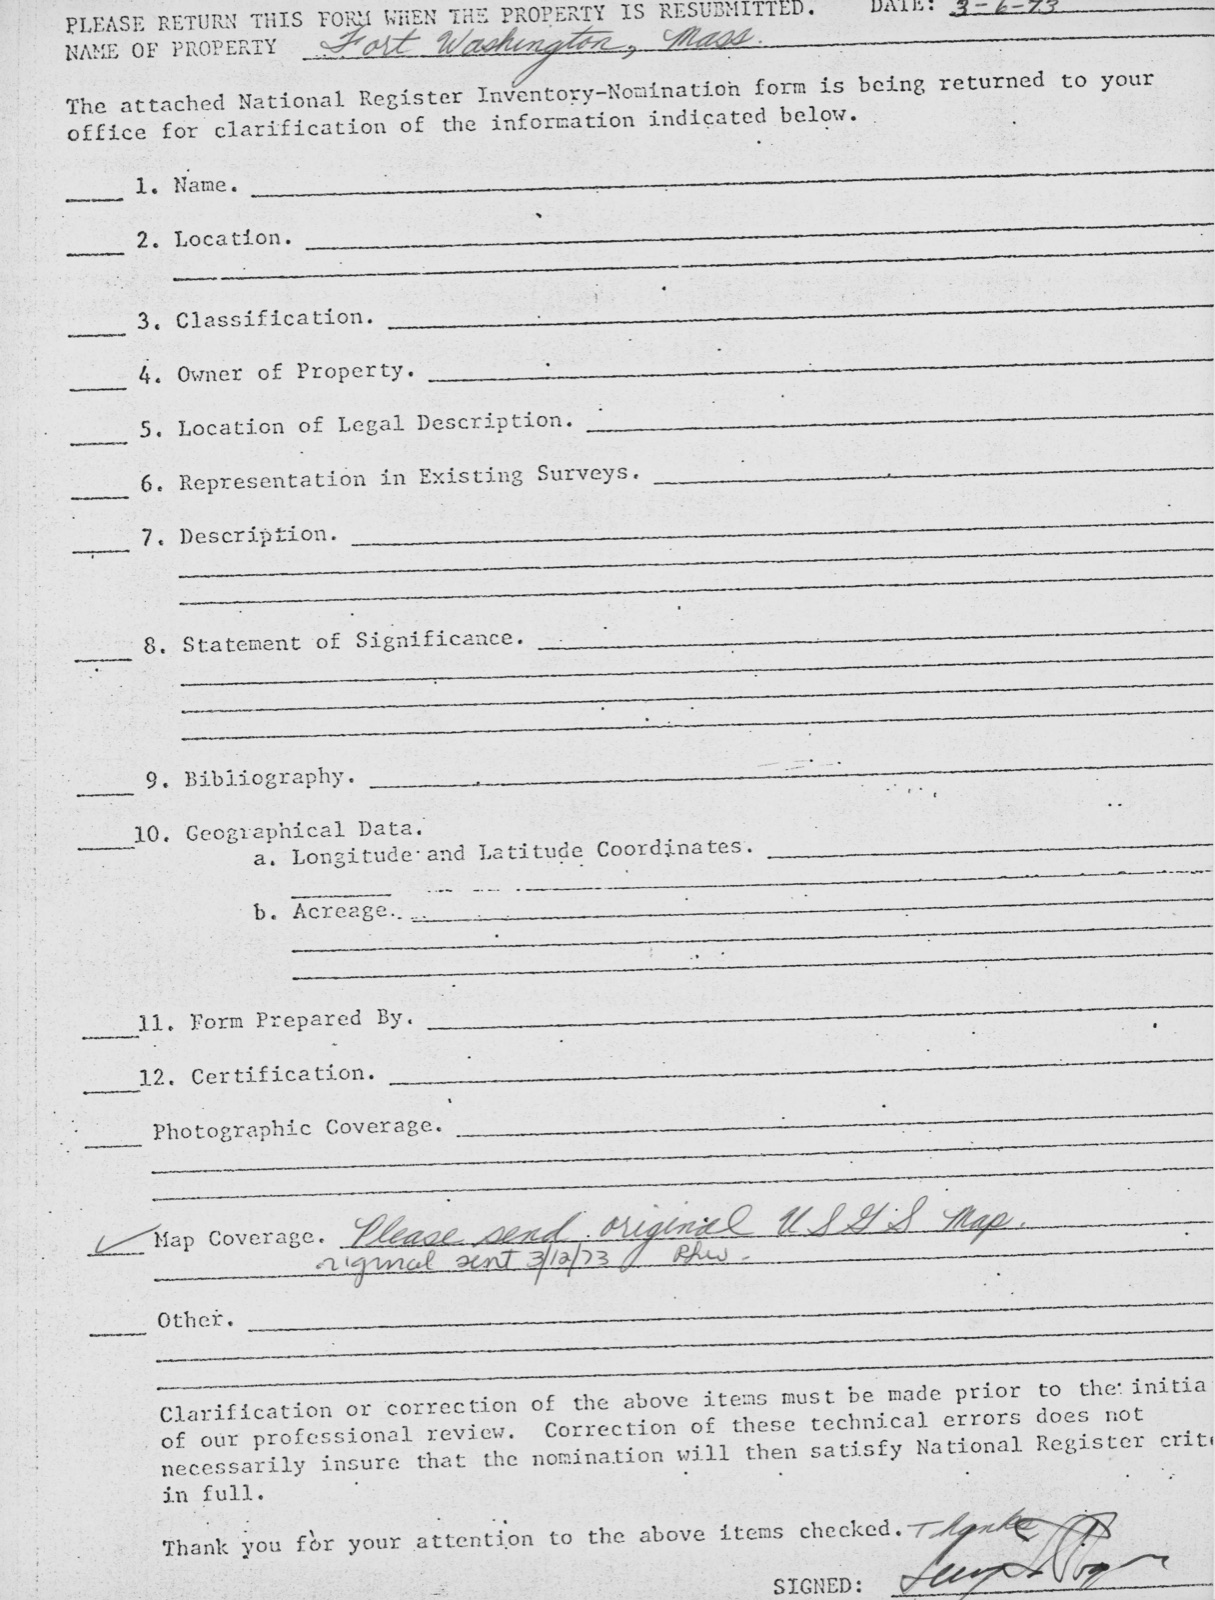 PLEASE RETURN THIS FORM WHEN THE PROPERTY IS RESUBMITTED. DATE: 3-6-73
NAME OF PROPERTY Fort Washington, Mass.
The attached National Register Inventory-Nomination form is being returned to your
office for clarification of the information indicated below.
1. Name.
2. Location.
3. Classification.
4. Owner of Property.
5. Location of Legal Description.
6. Representation in Existing Surveys.
7. Description.
8. Statement of Significance.
9. Bibliography.
10. Geographical Data.
a. Longitude and Latitude Coordinates.
b. Acreage.
11. Form Prepared By.
12. Certification.
Photographic Coverage.
✓ Map Coverage. Please send original USGS Map.
original sent 3/12/73
Other.
Clarification or correction of the above items must be made prior to the initia
of our professional review. Correction of these technical errors does not
necessarily insure that the nomination will then satisfy National Register crite
in full.
Thank you for your attention to the above items checked. Thanks
SIGNED: